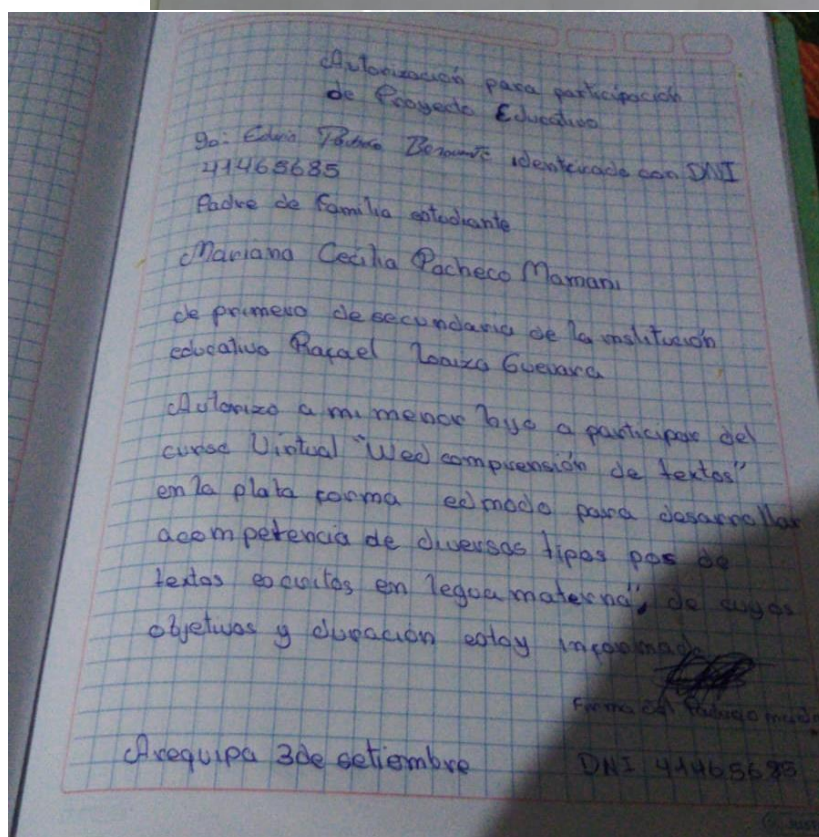 Autorización para participación
de Proyecto Educativo
Yo: Edwin identificado con DNI
41465685
Padre de familia estudiante
Mariana Cecilia Pacheco Mamani
de primero de secundaria de la institución
educativo Rafael Loaiza Guevara
Autorizo a mi menor hijo a participar del
curso Virtual "Wed comprensión de textos"
en la plata forma edmodo para desarrollar
acompetencia de diversos tipos pos de
textos escritos en legua materna", de cuyos
objetivos y duración estoy informado
Firma del Padre o madre
Arequipa 3 de setiembre DNI 41465685